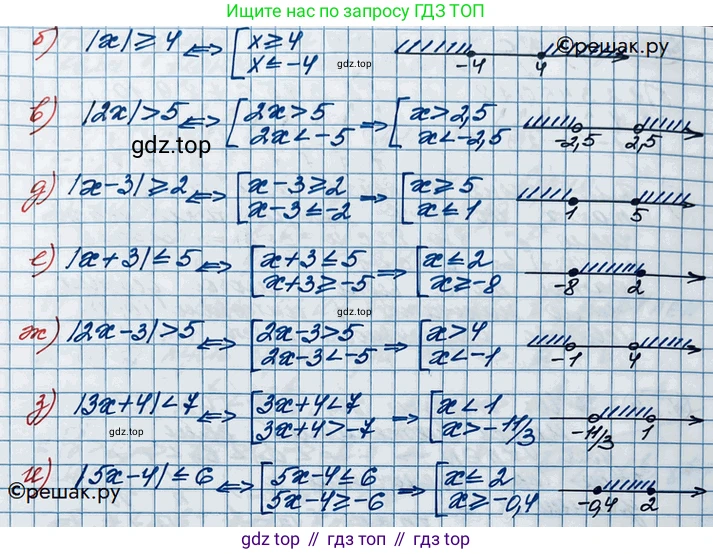 Ищите нас по запросу ГДЗ ТОП
б) |x| ≥ 4 ⇔ [x ≥ 4
x ≤ -4
gdz.top
-4 4
©решак.ру
в) |2x| > 5 ⇔ [2x > 5
2x < -5 ⇒ [x > 2,5
x < -2,5
-2,5 2,5
gdz.top
д) |x-3| ≥ 2 ⇔ [x-3 ≥ 2
x-3 ≤ -2 ⇒ [x ≥ 5
x ≤ 1
1 5
е) |x+3| ≤ 5 ⇔ [x+3 ≤ 5
x+3 ≥ -5 ⇒ [x ≤ 2
x ≥ -8
-8 2
gdz.top
ж) |2x-3| > 5 ⇔ [2x-3 > 5
2x-3 < -5 ⇒ [x > 4
x < -1
-1 4
з) |3x+4| < 7 ⇔ [3x+4 < 7
3x+4 > -7 ⇒ [x < 1
x > -11/3
-11/3 1
gdz.top
и) |5x-4| ≤ 6 ⇔ [5x-4 ≤ 6
5x-4 ≥ -6 ⇒ [x ≤ 2
x ≥ -0,4
-0,4 2
©решак.ру
gdz.top // гдз.top // гдз топ